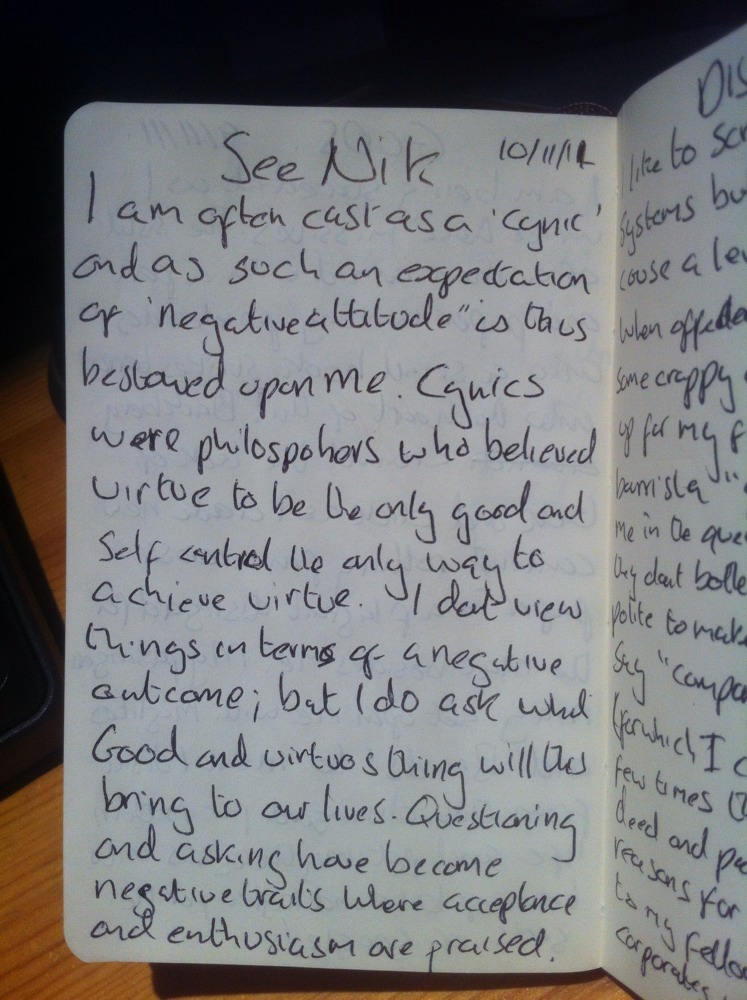 See Nik 10/11/11
I am often cast as a 'cynic'
and as such an expectation
of 'negative attitude" is thus
bestowed upon me. Cynics
were philospohers who believed
virtue to be the only good and
Self control the only way to
achieve virtue. I dont view
things in terms of a negative
outcome; but I do ask what
Good and virtuos thing will this
bring to our lives. Questioning
and asking have become
negative traits where acceptance
and enthusiasm are praised.
DIS
I like to
systems
cause a
when
some crappy
up for my
barrista"
me in the
they dont
polite to
say
(for which I
few times
deed and
reasons for
to my
corporates